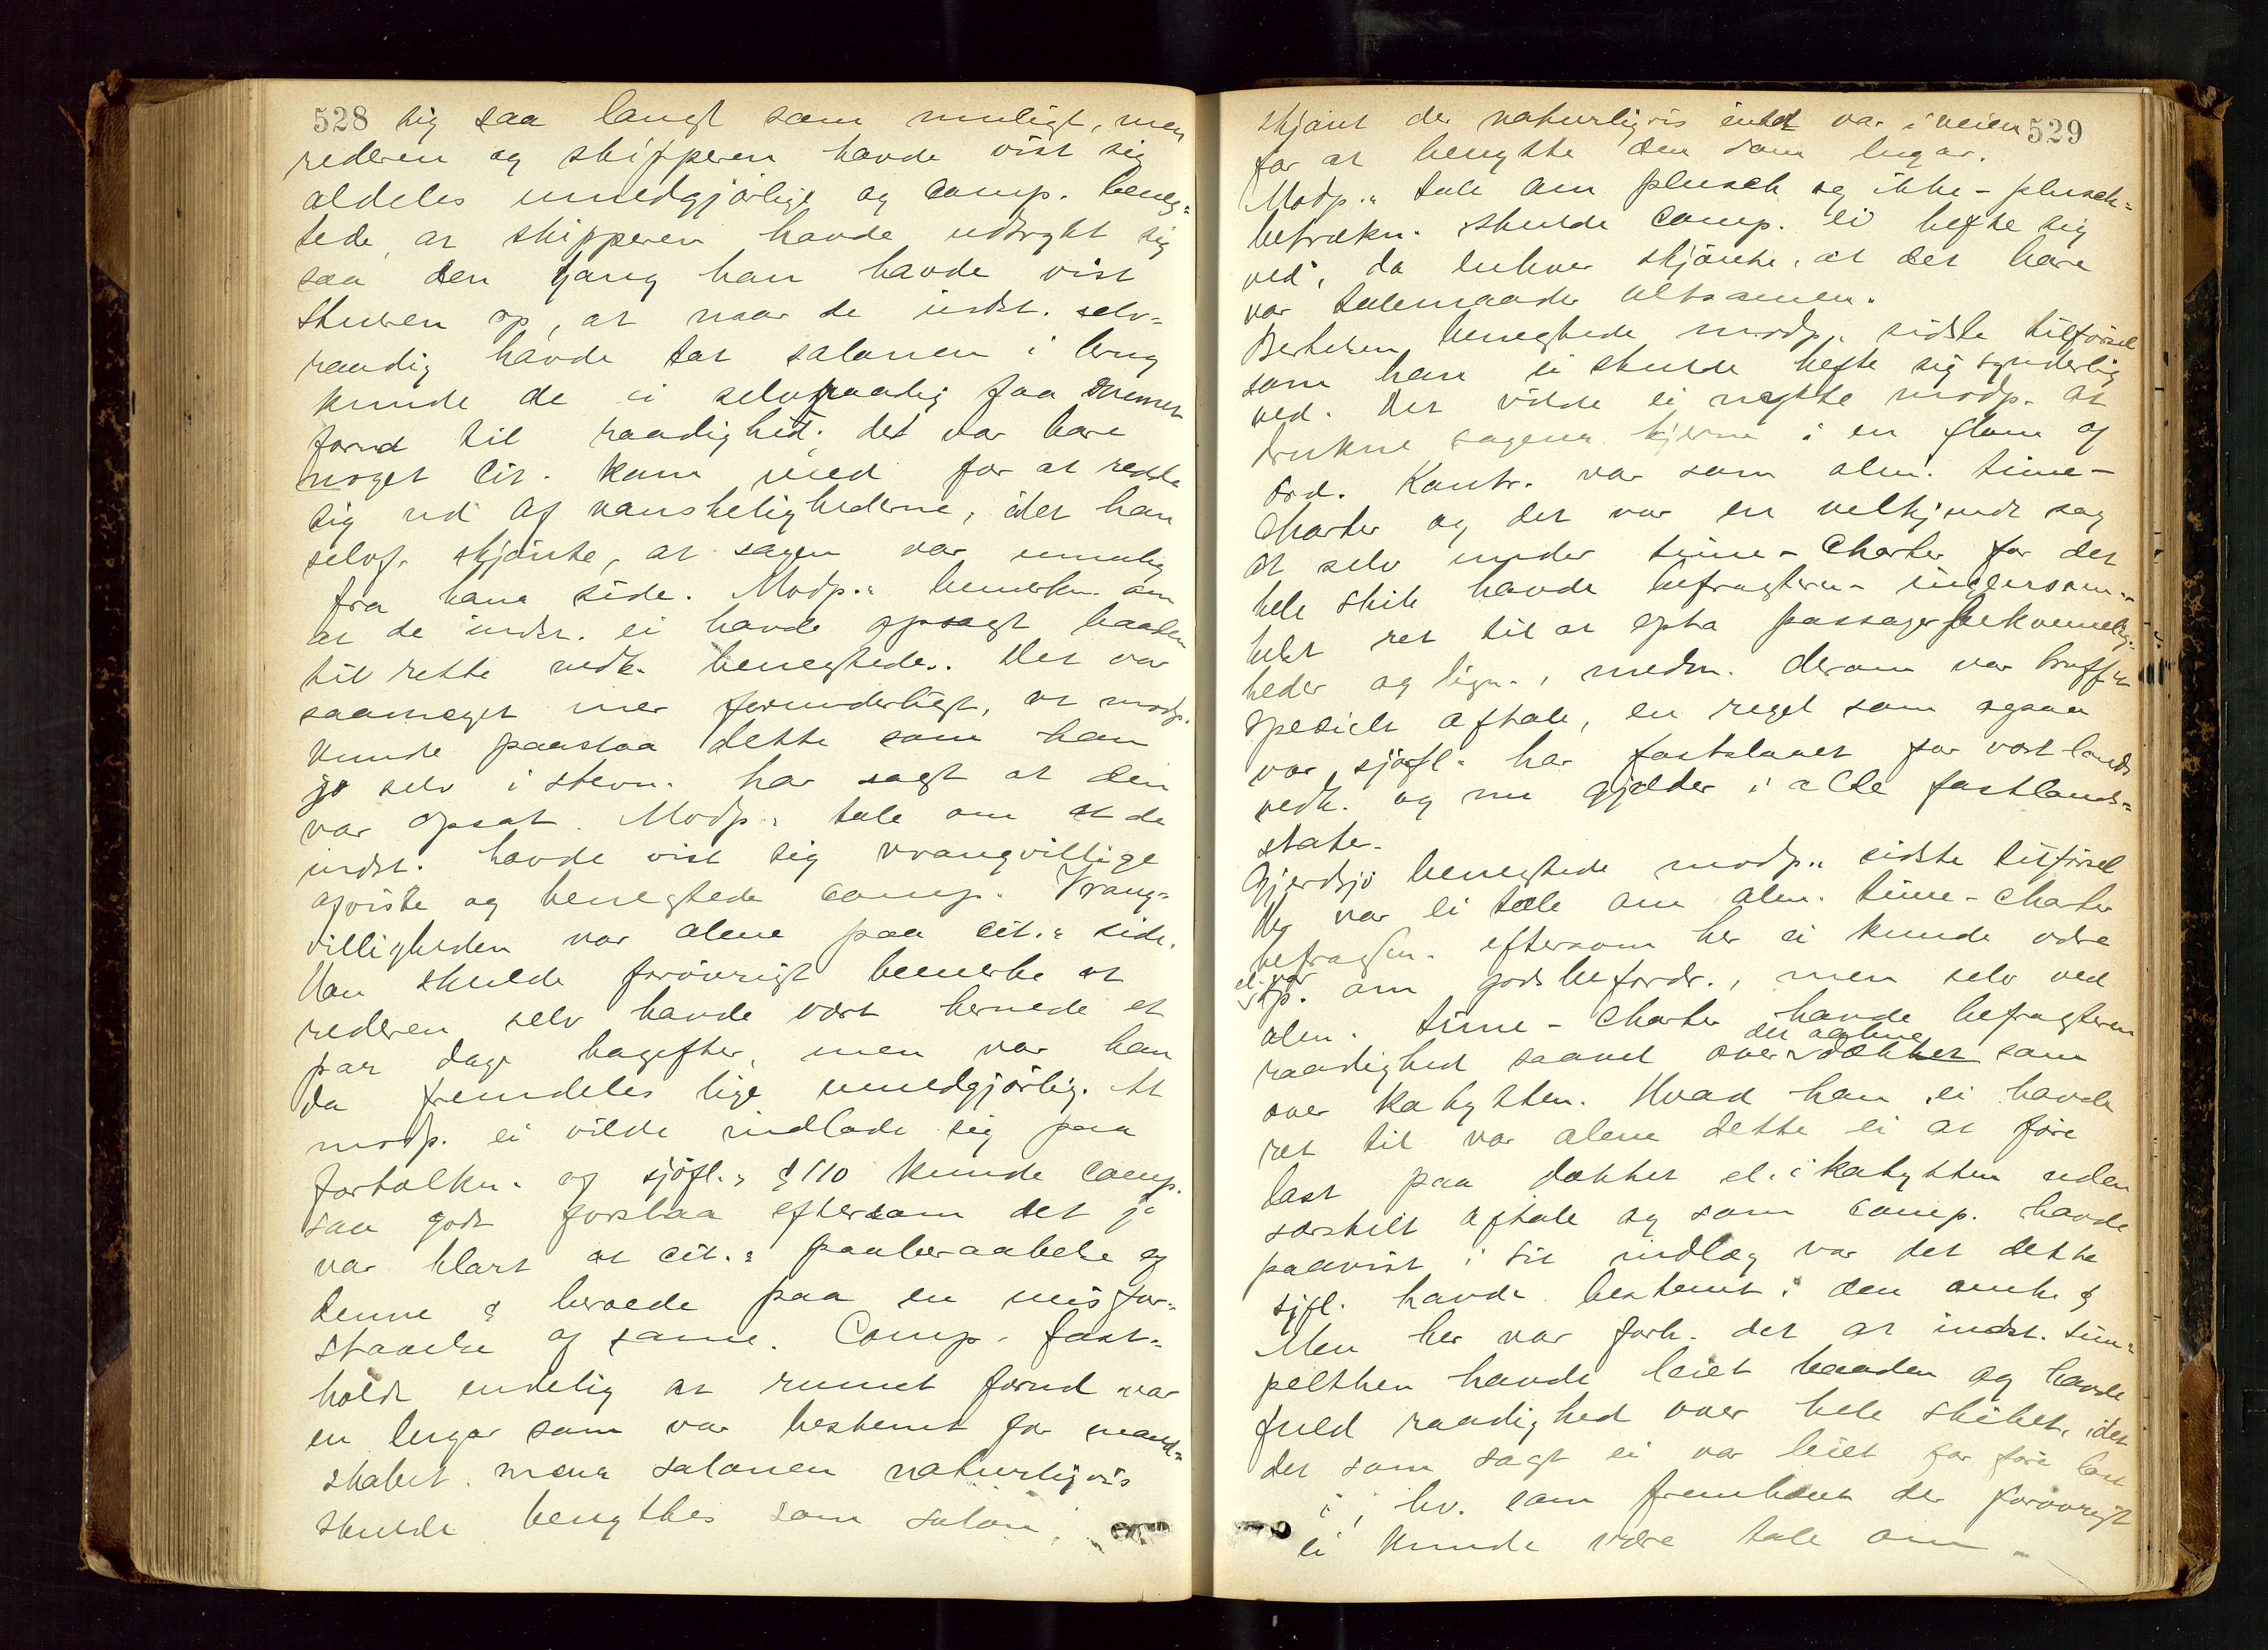 528 sig saa langt som muligt, men
rederen og skipperen havde vist sig
aldeles umedgjørlige og Comp. beneg=
tede, at skipperen havde udtrykt sig
saa den gang han havde vist
Stuven op, at naar de indst. selv=
raadig havde tat salonen i brug
kunde de ei selvraadig faa rummet
forud til raadighed; det var bare
noget Cit. kom med for at redde
sig ud af vanskelighederne, idet han
selvf. skjønte, at sagen var umulig
fra hans side. Modp.s bemerkn. om
at de indst. ei havde opsagt baaden
til rette vedk. benegtedes. Det var
saameget mer forunderligt, at modp.
kunde paastaa dette som han
jo selv i stevn. har sagt at den
var opsat. Modp.s tale om at de
indst. havde vist sig vrangvillige
afviste og benegtede Comp. Vrang=
villigheden var alene paa Cit.s side.
Han skulde forøvrigt bemerke at
rederen selv havde vært hernede et
par dage bagefter, men var han
da fremdeles lige umedgjørlig. At
modp. ei vilde indlade sig paa
fortolkn. af sjøfl.s § 110 kunde Comp.
saa godt forstaa eftersom det jo
var klart at Cit.s paaberaabelse af
denne § beroede paa en misfor=
staaelse af samme. Comp. fast=
holdt endelig at rummet forud var
en lugar som var bestemt for mand=
skabet, mens salonen naturligvis
skulde benyttes som salon,
skjønt der naturligvis intet var i veien 529
for at benytte den som lugar.
Modp.s tale om plusch og ikke-plusch=
betrækn. skulde Comp. ei hefte sig
ved, da enhver skjønte, at det bare
var talemaader altsammen.
Bertelsen benegtede modp.s sidste tilførsel
som han ei skulde hefte sig synderlig
ved. Det vilde ei nytte modp. at
drukne sagens kjerne i en flom af
ord. Kontr. var som alm. time-
Charter og det var en velkjendt sag
at selv under time-Charter for det
hele skib havde befragteren ingensom=
helst ret til at opta passagerbekvemmelig=
heder og lign., medm. derom var truffet
speciel aftale, en regel som ogsaa
vor sjøfl. har fastslaaet for vort lands
vedk. og nu gjælder i alle fastlands=
stater.
Gjerdsjø benegtede modp.s sidste tilførsel
Her var ei tale om alm. time-Charter
befragtn. eftersom her ei kunde være
el. var
sp. om godsbefordr., men selv ved
alm. time-Charter havde befragteren
det aabne
raadighed saavel over dækket som
over kahytten. Hvad han ei havde
ret til var alene dette ei at føre
last paa dækket el. i kahytten uden
særskilt aftale og som Comp. havde
paavist i sit indlæg var det dette
sjfl. havde bestemt i den omh. §
Men her var forh. det at indst. sim=
pelthen havde leiet baaden og havde
fuld raadighed over hele skibet, idet
det som sagt ei var leiet for føre last
i, hv. som fremhævet der forøvrigt
ei kunde være tale om.